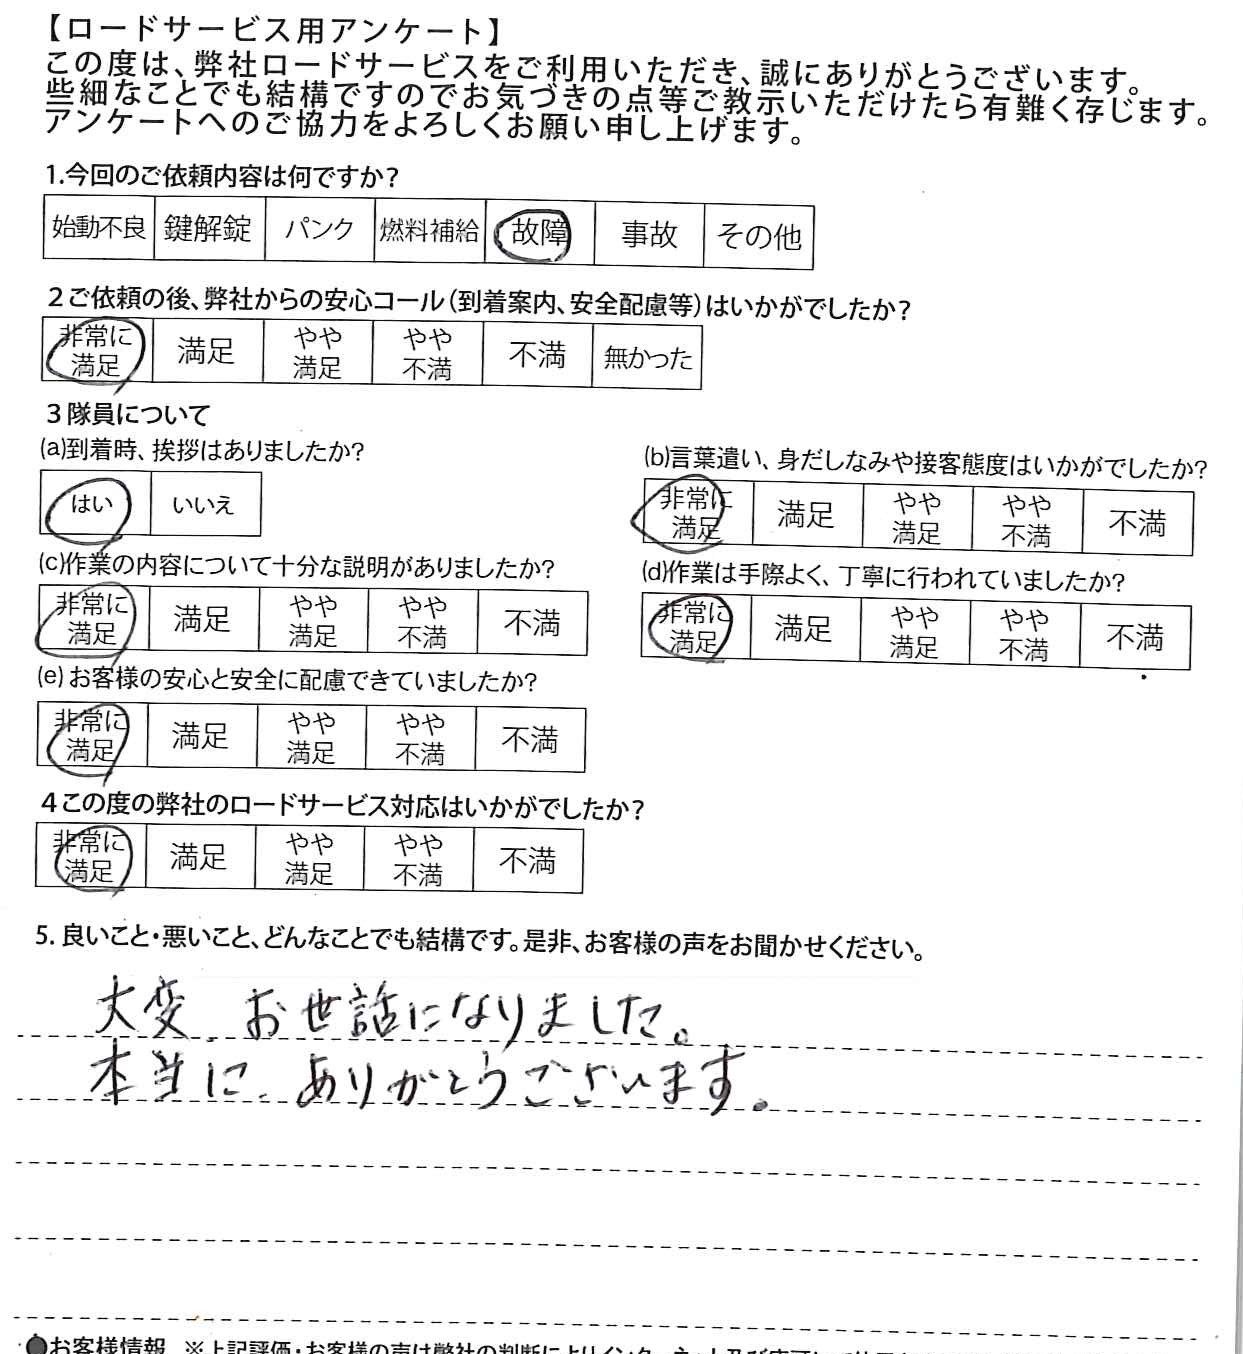 【ロードサービス用アンケート】
この度は、弊社ロードサービスをご利用いただき、誠にありがとうございます。
些細なことでも結構ですのでお気づきの点等ご教示いただけたら有難く存じます。
アンケートへのご協力をよろしくお願い申し上げます。
1.今回のご依頼内容は何ですか?
始動不良 鍵解錠 パンク 燃料補給 故障 事故 その他
2ご依頼の後、弊社からの安心コール(到着案内、安全配慮等)はいかがでしたか?
非常に満足 満足 やや満足 やや不満 不満 無かった
3隊員について
(a)到着時、挨拶はありましたか?
はい いいえ
(b)言葉遣い、身だしなみや接客態度はいかがでしたか?
非常に満足 満足 やや満足 やや不満 不満
(c)作業の内容について十分な説明がありましたか?
非常に満足 満足 やや満足 やや不満 不満
(d)作業は手際よく、丁寧に行われていましたか?
非常に満足 満足 やや満足 やや不満 不満
(e)お客様の安心と安全に配慮できていましたか?
非常に満足 満足 やや満足 やや不満 不満
4この度の弊社のロードサービス対応はいかがでしたか?
非常に満足 満足 やや満足 やや不満 不満
5. 良いこと・悪いこと、どんなことでも結構です。是非、お客様の声をお聞かせください。
大変 お世話になりました。
本当に ありがとうございます。
●お客様情報 ※上記評価・お客様の声は弊社の判断によりインターネット及び